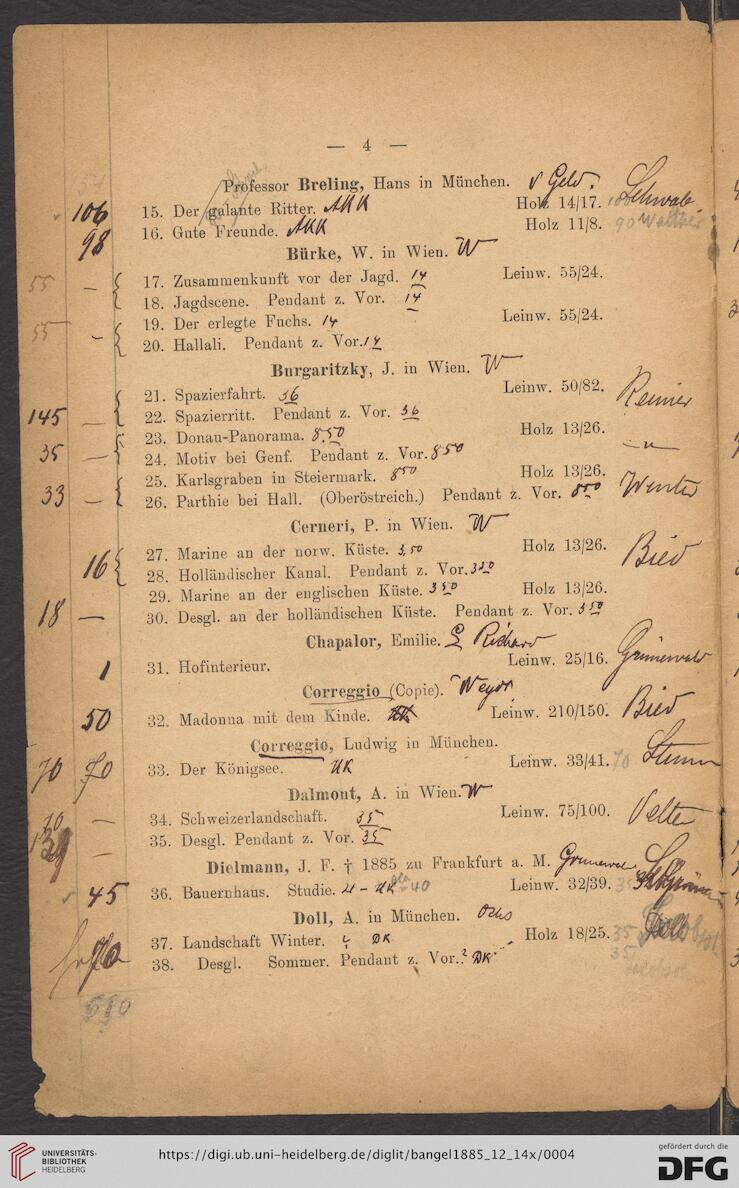 — 4 —
Professor Breling, Hans in München. v Geld.
106 15. Der galante Ritter. Holz 14/17. Schwab
98 16. Gute Freunde. Holz 11/8. 90 Walther
Bürke, W. in Wien. W
55 — { 17. Zusammenkunft vor der Jagd. 14 Leinw. 55/24.
18. Jagdscene. Pendant z. Vor. 14
55 — { 19. Der erlegte Fuchs. 14 Leinw. 55/24.
20. Hallali. Pendant z. Vor. 14
Burgaritzky, J. in Wien. W
145 — { 21. Spazierfahrt. 36 Leinw. 50/82.
22. Spazierritt. Pendant z. Vor. 36
35 — { 23. Donau-Panorama. 8.50 Holz 13/26.
24. Motiv bei Genf. Pendant z. Vor. 850
33 — { 25. Karlsgraben in Steiermark. 850 Holz 13/26.
26. Parthie bei Hall. (Oberöstreich.) Pendant z. Vor. 850 Winter
Cerneri, P. in Wien. W
16 { 27. Marine an der norw. Küste. 3,50 Holz 13/26.
28. Holländischer Kanal. Pendant z. Vor. 350
29. Marine an der englischen Küste. 350 Holz 13/26.
18 — 30. Desgl. an der holländischen Küste. Pendant z. Vor. 350
Chapalor, Emilie. Richard
1 31. Hofinterieur. Leinw. 25/16. Grünewald
Correggio (Copie).
50 32. Madonna mit dem Kinde. Leinw. 210/150.
Correggio, Ludwig in München.
70 70 33. Der Königsee. UK Leinw. 33/41. 70
Dalmont, A. in Wien. W
— 34. Schweizerlandschaft. 35 Leinw. 75/100.
— 35. Desgl. Pendant z. Vor. 35
Dielmann, J. F. † 1885 zu Frankfurt a. M.
45 36. Bauernhaus. Studie. Leinw. 32/39.
Doll, A. in München. Ochs
70 37. Landschaft Winter. DK Holz 18/25. 35
38. Desgl. Sommer. Pendant z. Vor. ? DK 35 Jacobsohn
UNIVERSITÄTS-
BIBLIOTHEK
HEIDELBERG
https://digi.ub.uni-heidelberg.de/diglit/bangel1885_12_14x/0004
gefördert durch die
DFG